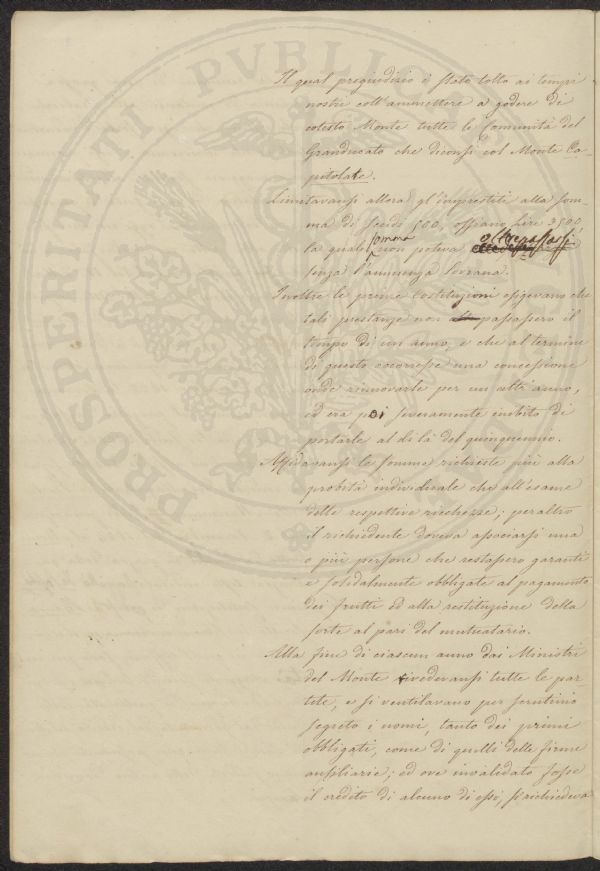 Il qual pregiudizio è stato tolto ai tempi
nostri coll'ammettere a godere di
cotesto Monte tutte le Comunità del
Granducato che diconsi col Monte Ca-
pitolate.
Limitavansi allora gl'imprestiti alla som-
ma di scudi 500, ossiano lire 3500
la quale somma non poteva oltrepassarsi
senza l'annuenza Sovrana.
Inoltre le prime Costituzioni esigevano che
tali prestanze non passassero il
tempo di un anno, e che al termine
di questo occorresse una concessione
onde rinnovarle per un altr'anno,
ed era poi severamente inibito di
portarle al di là del quinquennio.
Affidavansi le somme richieste più alla
probità individuale che all'esame
delle respettive ricchezze; peraltro
il richiedente doveva associarsi una
o più persone che restassero garanti
e solidalmente obbligate al pagamento
dei frutti ed alla restituzione della
sorte al pari del mutuatario.
Alla fine di ciascun anno dai Ministri
del Monte rivedevansi tutte le par-
tite, e si ventilavano per scrutinio
segreto i nomi, tanto dei primi
obbligati, come di quelli delle firme
ausiliarie; ed ove invalidato fosse
il credito di alcuno di essi, si richiedeva
PROSPERITATI PVBLICAE